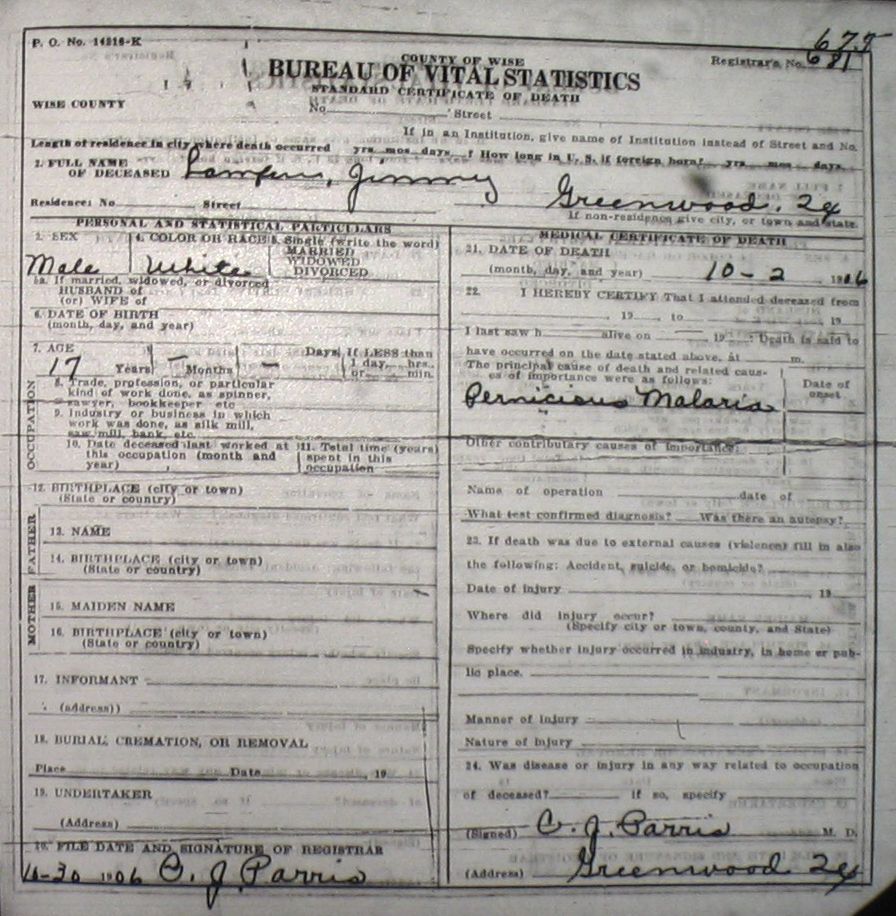 P. O. No. 14216-K
677
COUNTY OF WISE
Registrar's No. 681
BUREAU OF VITAL STATISTICS
STANDARD CERTIFICATE OF DEATH
WISE COUNTY
No. Street
If in an Institution, give name of Institution instead of Street and No.
Length of residence in city where death occurred yrs. mos. days. ? How long in U. S. if foreign born? yrs. mos. days.
2. FULL NAME
OF DECEASED Jimmy
Residence: No. Street Greenwood,
If non-residence give city, or town and state.
PERSONAL AND STATISTICAL PARTICULARS
3. SEX 4. COLOR OR RACE 5. Single (write the word)
MARRIED
WIDOWED
DIVORCED
Male White
5a. If married, widowed, or divorced
HUSBAND of
(or) WIFE of
6. DATE OF BIRTH
(month, day, and year)
7. AGE
17 Years - Months - Days If LESS than
1 day, hrs.
or min.
OCCUPATION
8. Trade, profession, or particular
kind of work done, as spinner,
sawyer, bookkeeper etc
9. Industry or business in which
work was done, as silk mill,
saw mill, bank, etc.
10. Date deceased last worked at
this occupation (month and
year)
11. Total time (years)
spent in this
occupation
12. BIRTHPLACE (city or town)
(State or country)
FATHER
13. NAME
14. BIRTHPLACE (city or town)
(State or country)
MOTHER
15. MAIDEN NAME
16. BIRTHPLACE (city or town)
(State or country)
17. INFORMANT
(address))
18. BURIAL, CREMATION, OR REMOVAL
Place Date , 19
19. UNDERTAKER
(Address)
20. FILE DATE AND SIGNATURE OF REGISTRAR
1906 O. J. Parris
MEDICAL CERTIFICATE OF DEATH
21. DATE OF DEATH
(month, day, and year) 10-2 1906
22. I HEREBY CERTIFY That I attended deceased from
, 19 to , 19
I last saw h alive on 19 : Death is said to
have occurred on the date stated above, at m.
The principal cause of death and related caus-
es of importance were as follows:
Date of
onset
Pernicious Malaria
Other contributary causes of importance:
Name of operation date of
What test confirmed diagnosis? Was there an autopsy?
23. If death was due to external causes (violence) fill in also
the following: Accident, suicide, or homicide?
Date of injury , 19
Where did injury occur?
(Specify city or town, county, and State)
Specify whether injury occurred in industry, in home or pub-
lic place.
Manner of injury
Nature of injury
24. Was disease or injury in any way related to occupation
of deceased? if so, specify
(Signed) O. J. Parris M. D.
(Address) Greenwood